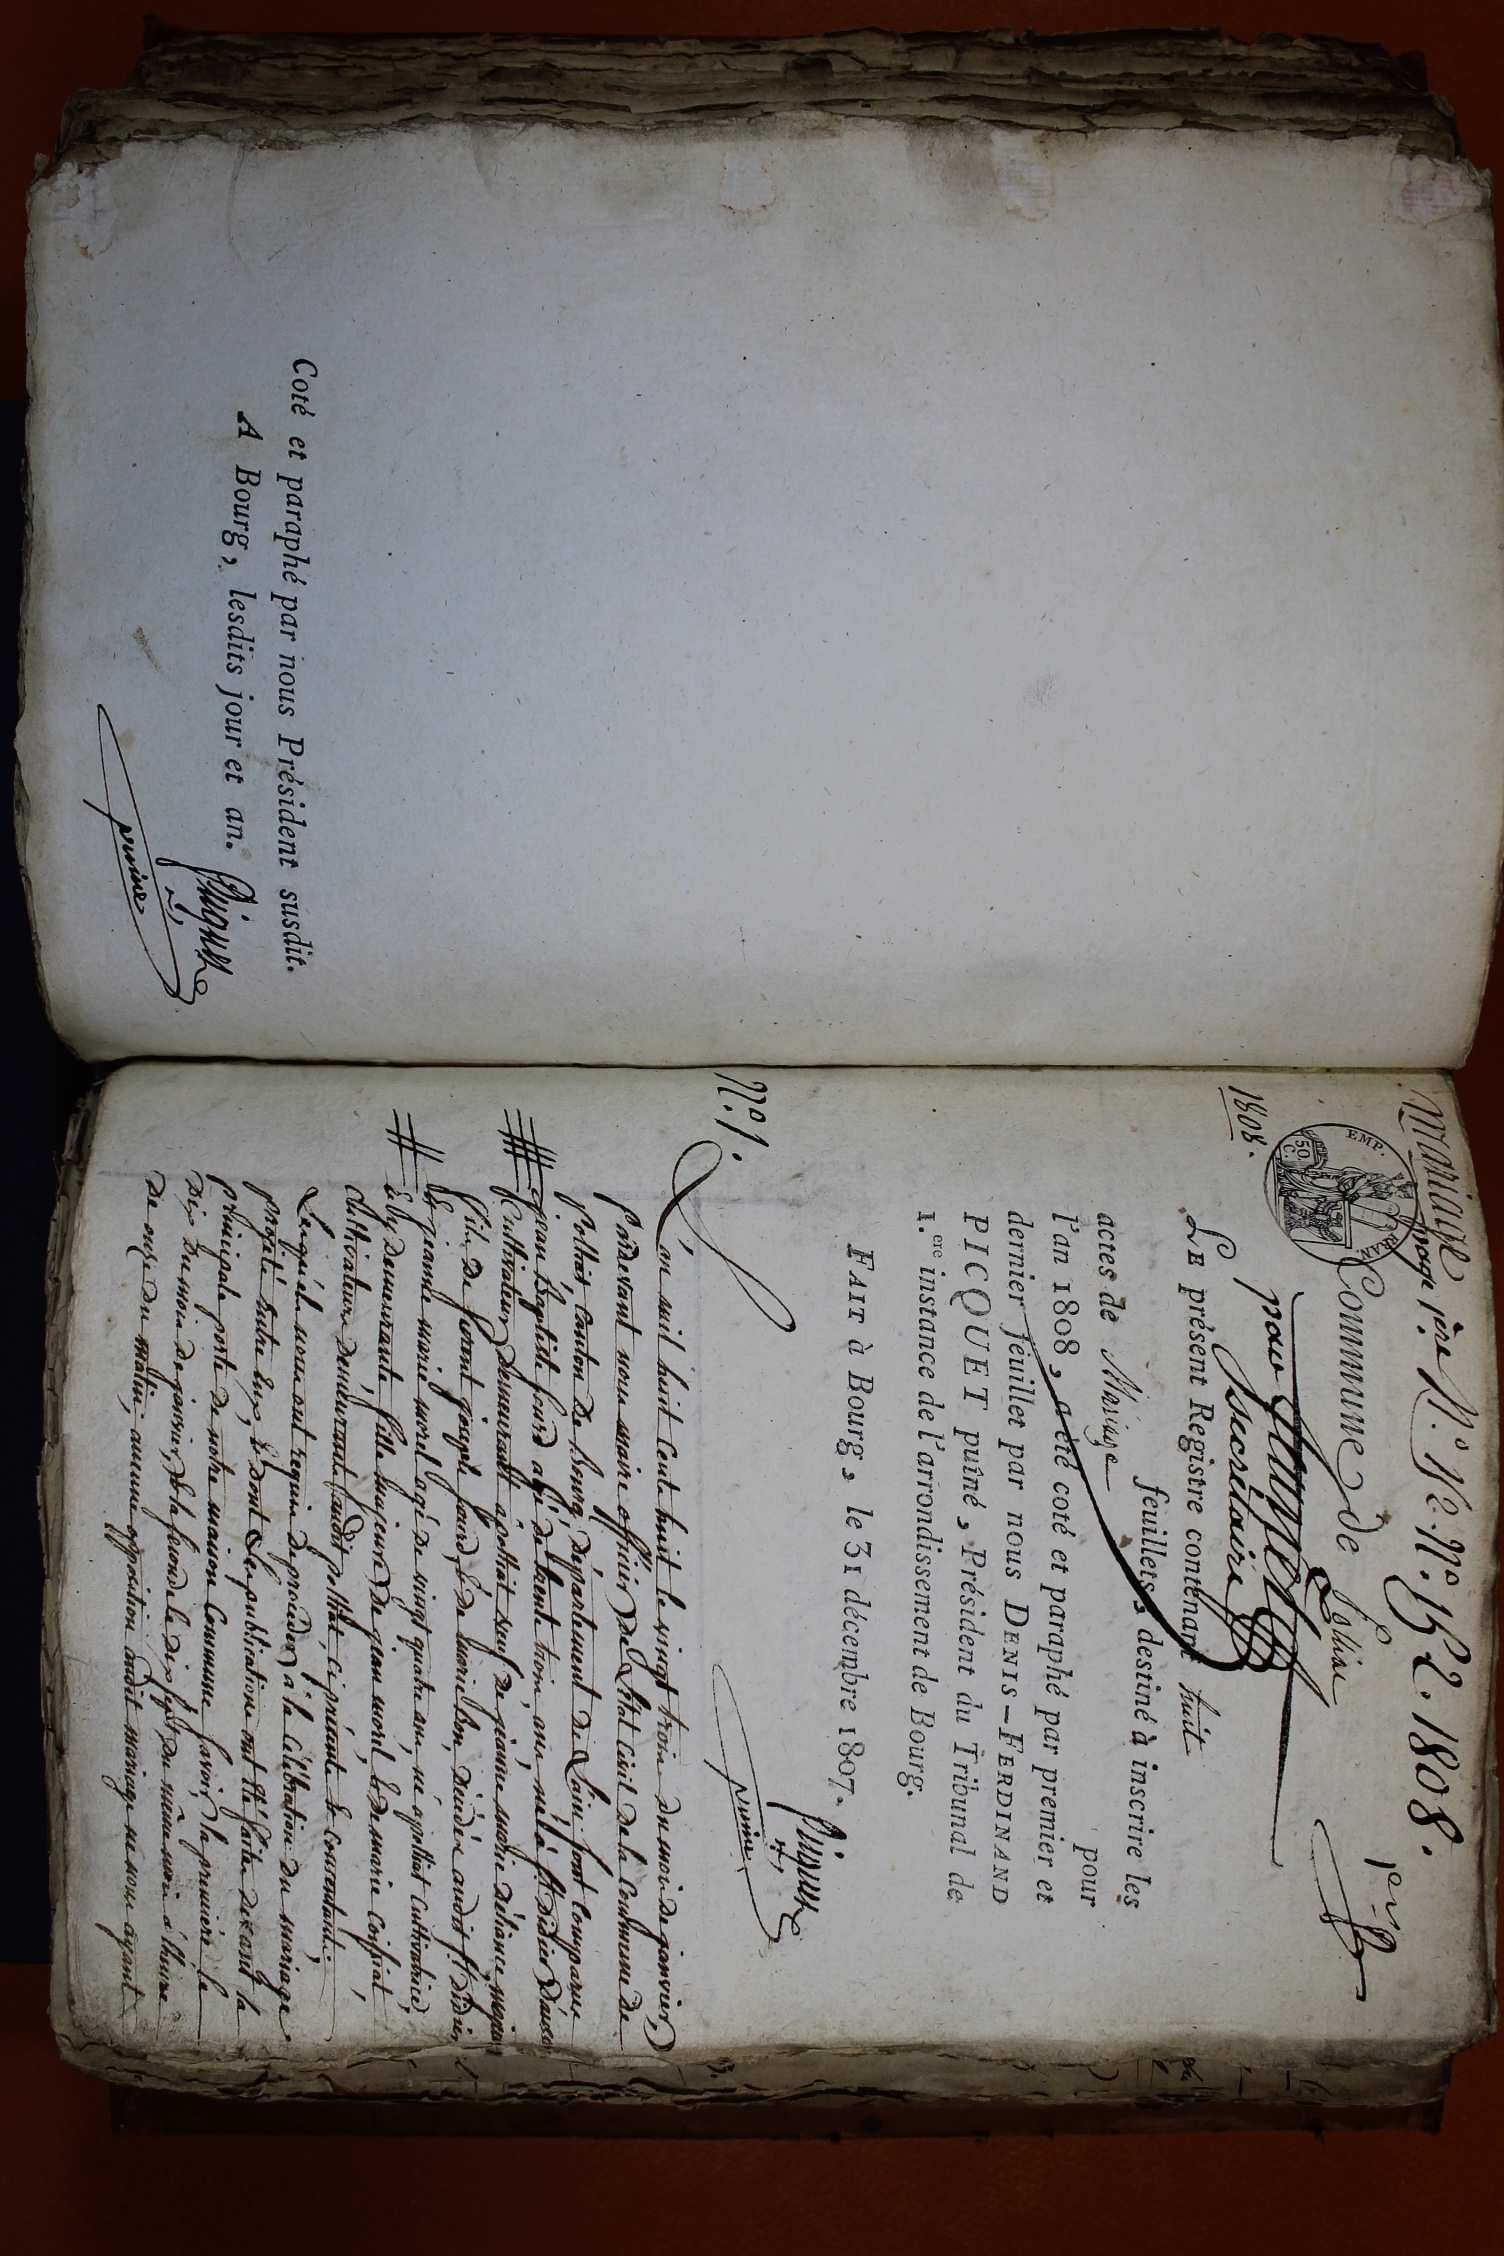 Coté et paraphé par nous Président susdit.
A Bourg, lesdits jour et an.
Picquet
puiné
Mariage 1ère N.º 152. Nº. 152. 1808.
1er
EMP.
FRAN
50.
C.
Commune de Polliat
1808.
pour
secrétaire
LE présent Registre contenant huit
feuillets, destiné à inscrire les
actes de Mariage pour
l'an 1808, a été coté et paraphé par premier et
dernier feuillet par nous DENIS-FERDINAND
PICQUET puîné, Président du Tribunal de
1.ere instance de l'arrondissement de Bourg.
FAIT à Bourg, le 31 décembre 1807.
Picquet
puiné
Nº. 1.
L'an mil huit cent huit le vingt trois du mois de janvier,
pardevant nous maire officier de l'état civil de la Commune de
polliat Canton de bourg, département de L'ain, sont comparus
jean Baptiste favre agé de trente trois ans né à st. Didier
Cultivateur, demeurant à polliat veuf de jeanne marie
fils de joseph favre, et de marie décédés audit st. Didier,
Et jeanne marie morel agée de vingt quatre ans, né à polliat Cultivatrice
et y demeurante fille majeure de jean morel et de marie
Cultivateurs demeurants audit polliat, ci présents et consentants.
Lesquels nous ont requis de procéder à la Célébration du mariage
projeté entre eux, et dont les publications ont été faites devant la
principale porte de notre maison Commune savoir, la première le
dix du mois de janvier, et la seconde le dix sept du même mois à l'heure
de onze du matin, aucune opposition audit mariage ne nous ayant